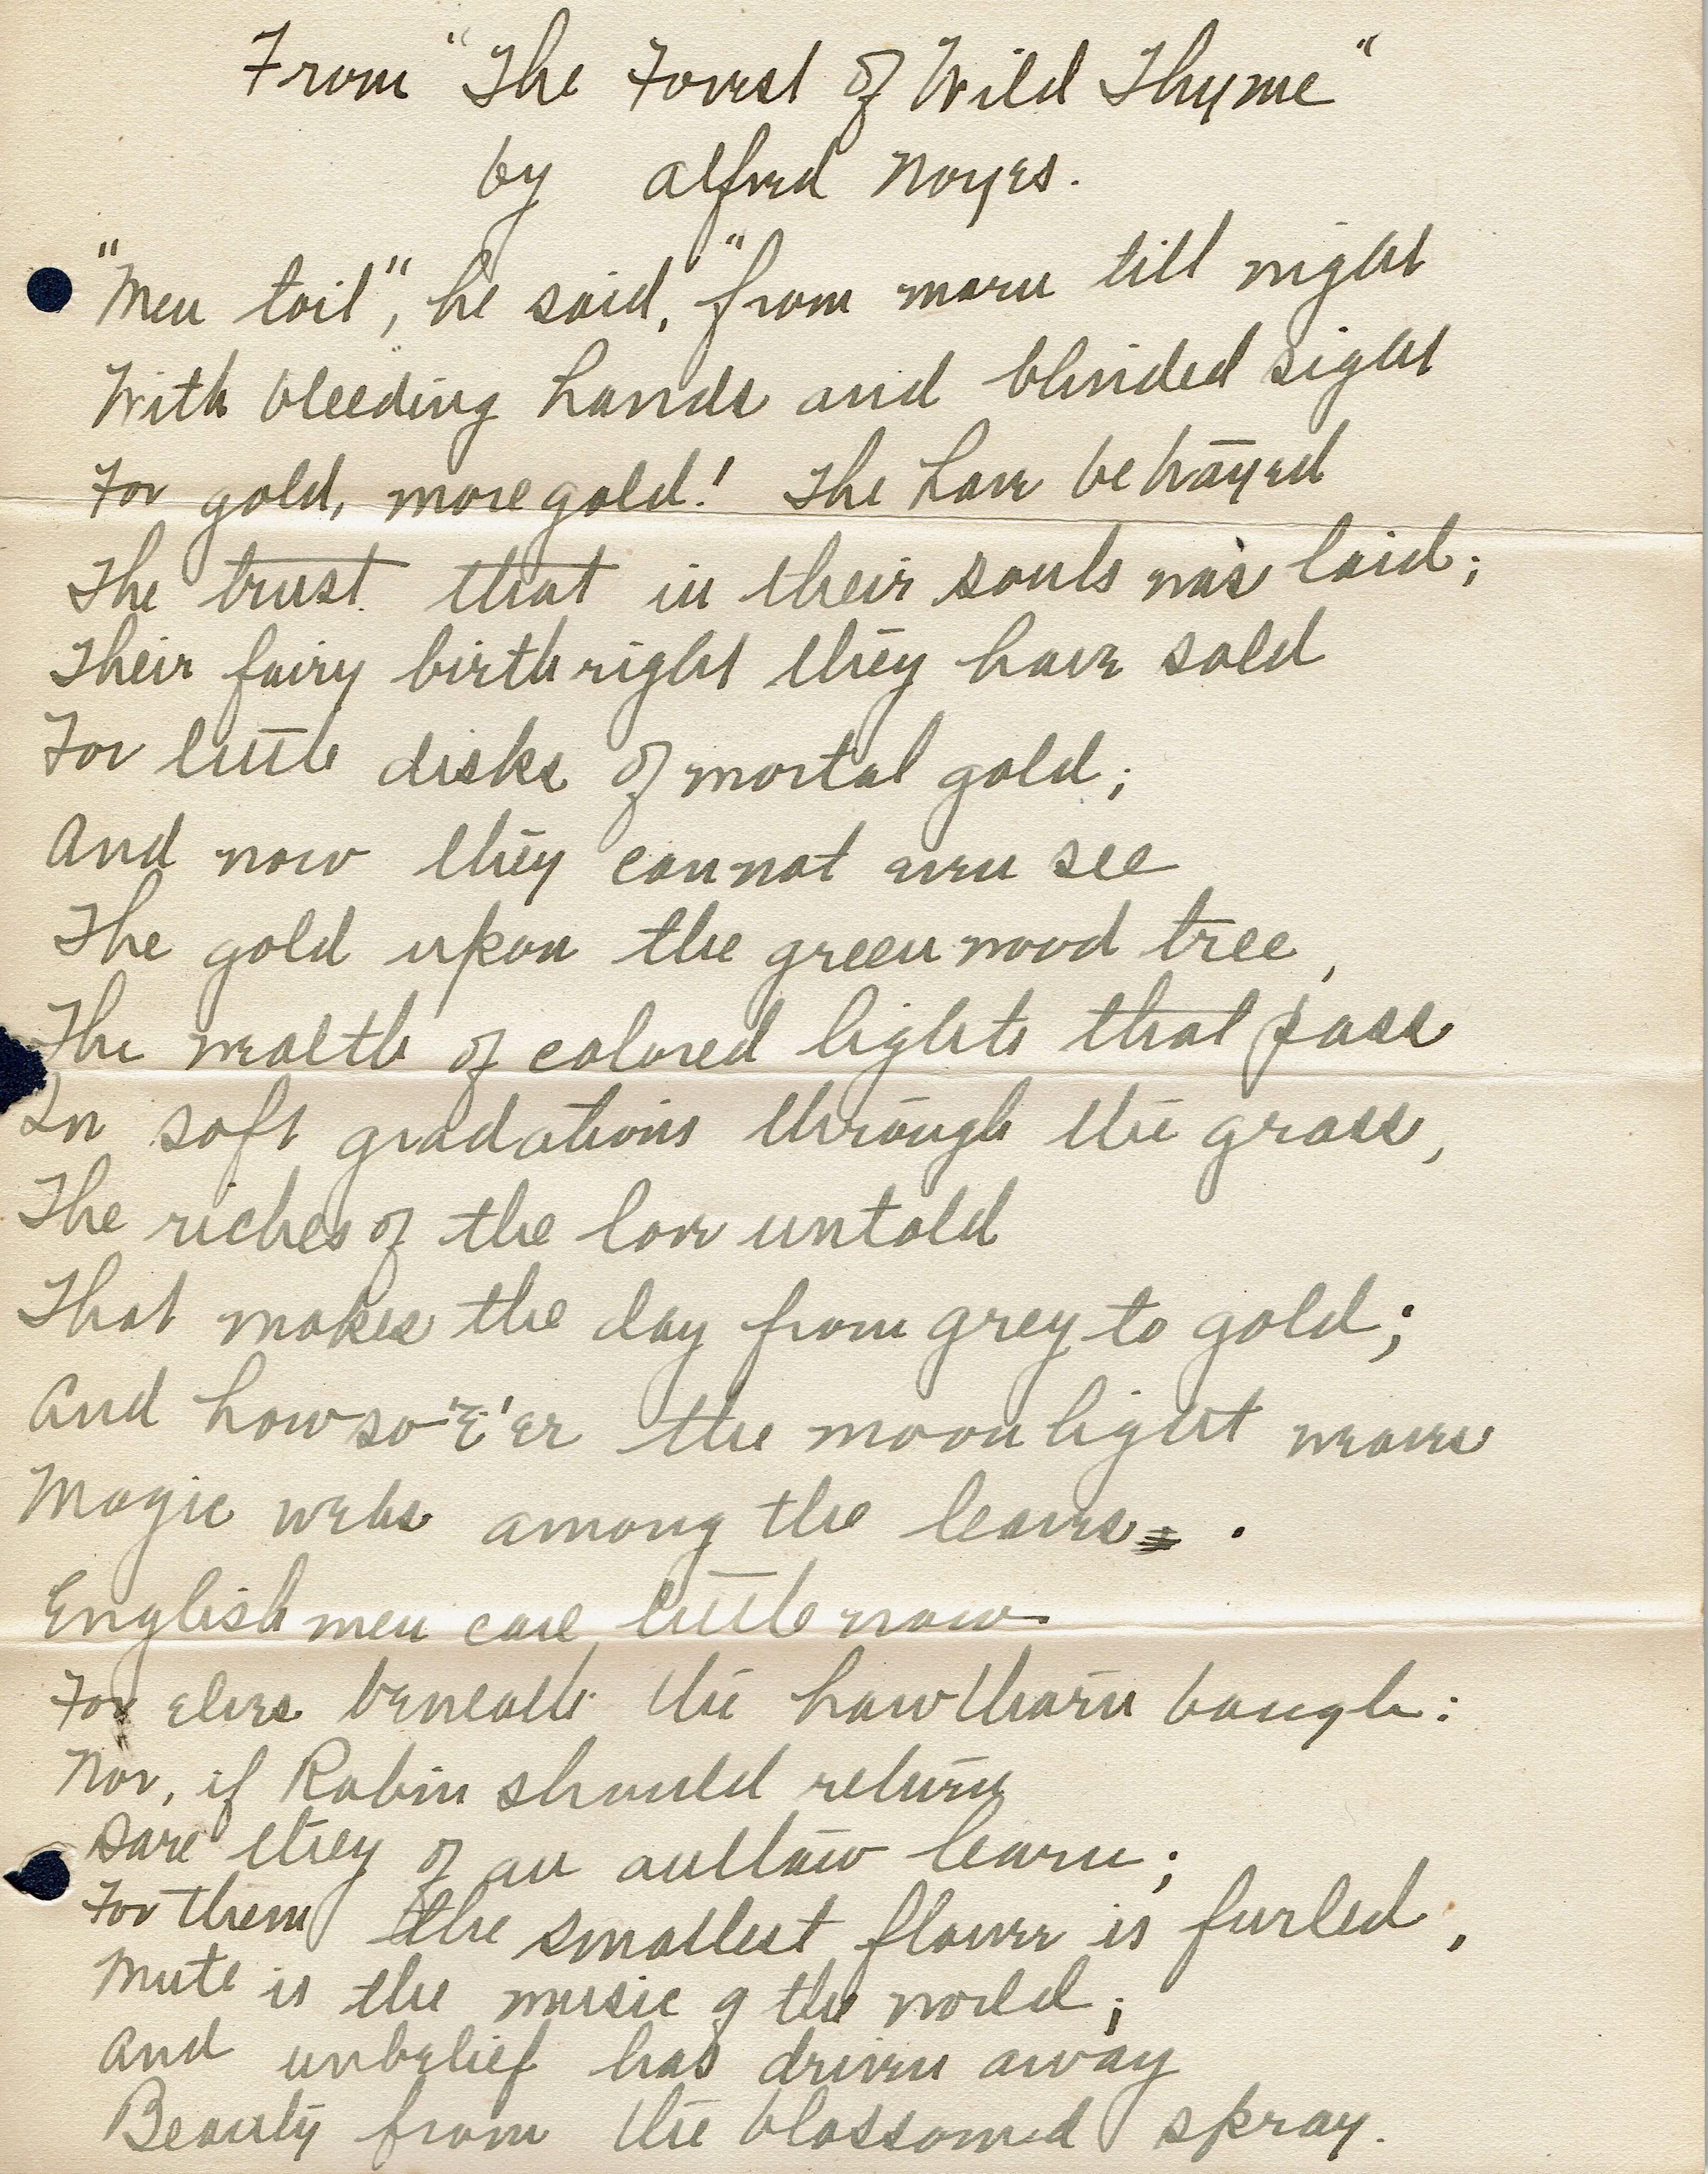 From "The Forest of Wild Thyme"
by Alfred Noyes.
"Men toil", he said, "from morn till night
With bleeding hands and blinded sight
For gold, more gold! The have betrayed
The trust that in their souls was laid;
Their fairy birthright they have sold
For little disks of mortal gold;
And now they cannot even see
The gold upon the greenwood tree,
The wealth of colored lights that pass
In soft gradations through the grass,
The riches of the love untold
That makes the day from grey to gold;
And howso'e'er the moonlight weaves
Magic webs among the leaves.
Englishmen care little now
For elves beneath the hawthorn bough:
Nor, if Robin should return
Dare they of an outlaw learn;
For them the smallest flower is furled,
Mute is the music of the world;
And unbelief has driven away
Beauty from the blossomed spray.